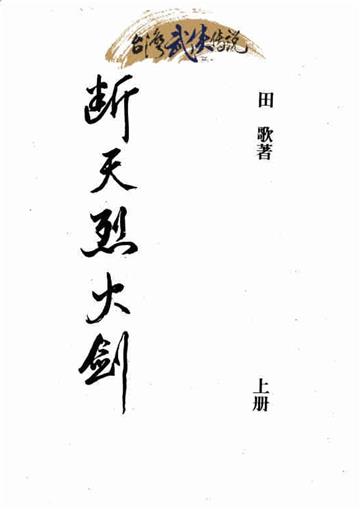 台湾武侠传说
断天烈火剑
田歌著
上册